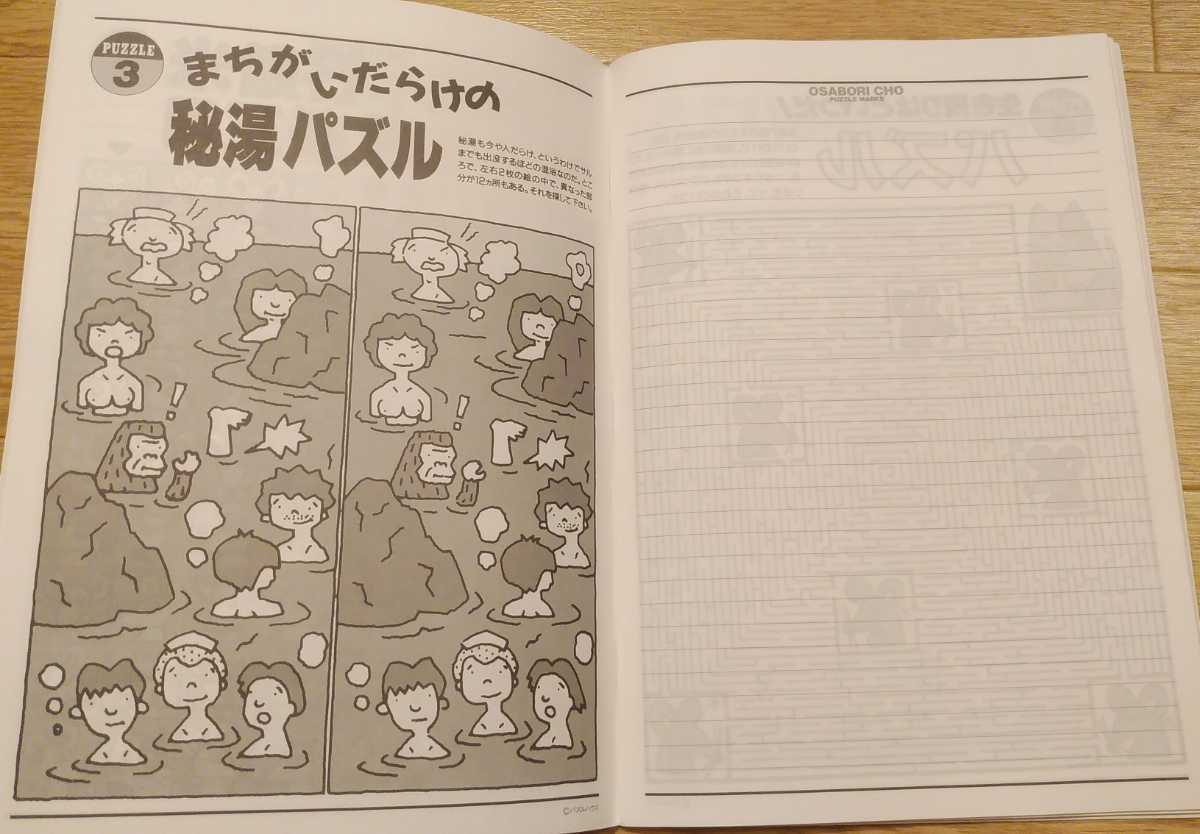 PUZZLE
3
まちがいだらけの
秘湯パズル
秘湯も今や人だらけ、というわけでサル
までも出没するほどの混浴なのだ。とこ
ろで、左右2枚の絵の中で、異なった部
分が12ヵ所もある。それを探して下さい。
!
!
©パズルハウス
OSABORI CHO
PUZZLE MARKS